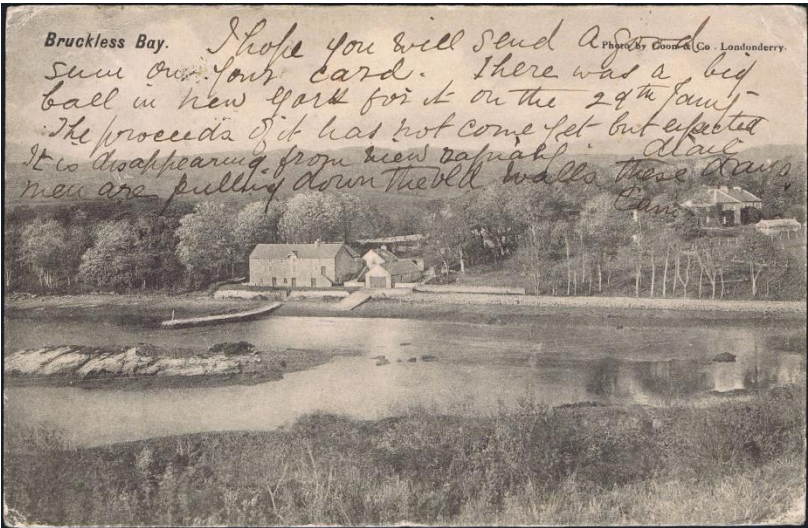 Bruckless Bay.
Photo by Coon & Co. Londonderry.
I hope you will send a good
sum on your card. There was a big
ball in new York for it on the 29th Jany
The proceeds of it has not come yet but expected
It is disappearing from view rapidly
men are pulling down the old walls these days